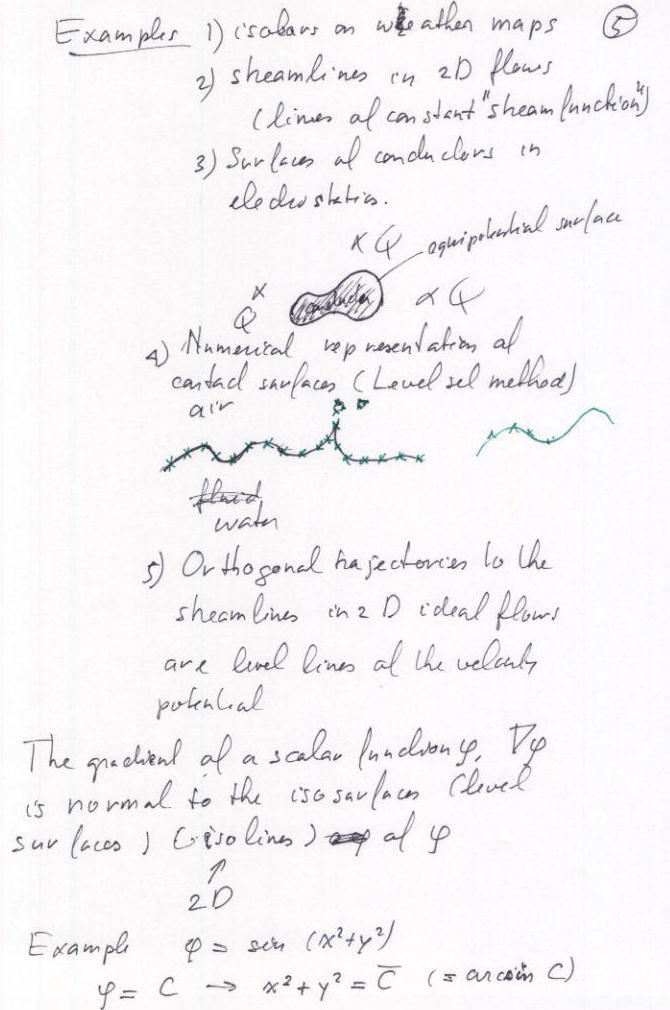 Examples 1) isobars on weather maps ⑤
2) streamlines in 2D flows
(lines of constant "stream function")
3) Surfaces of conductors in
electrostatics.
x Q equipotential surface
x Q
conductor
x Q
4) Numerical representation of
contact surfaces (Level set method)
air
fluid
water
5) Orthogonal trajectories to the
streamlines in 2D ideal flows
are level lines of the velocity
potential
The gradient of a scalar function φ, ∇φ
is normal to the isosurfaces (level
surfaces) (isolines) of φ
↑
2D
Example φ = sin (x²+y²)
φ = C → x²+y² = C̅ (= arcsin C)